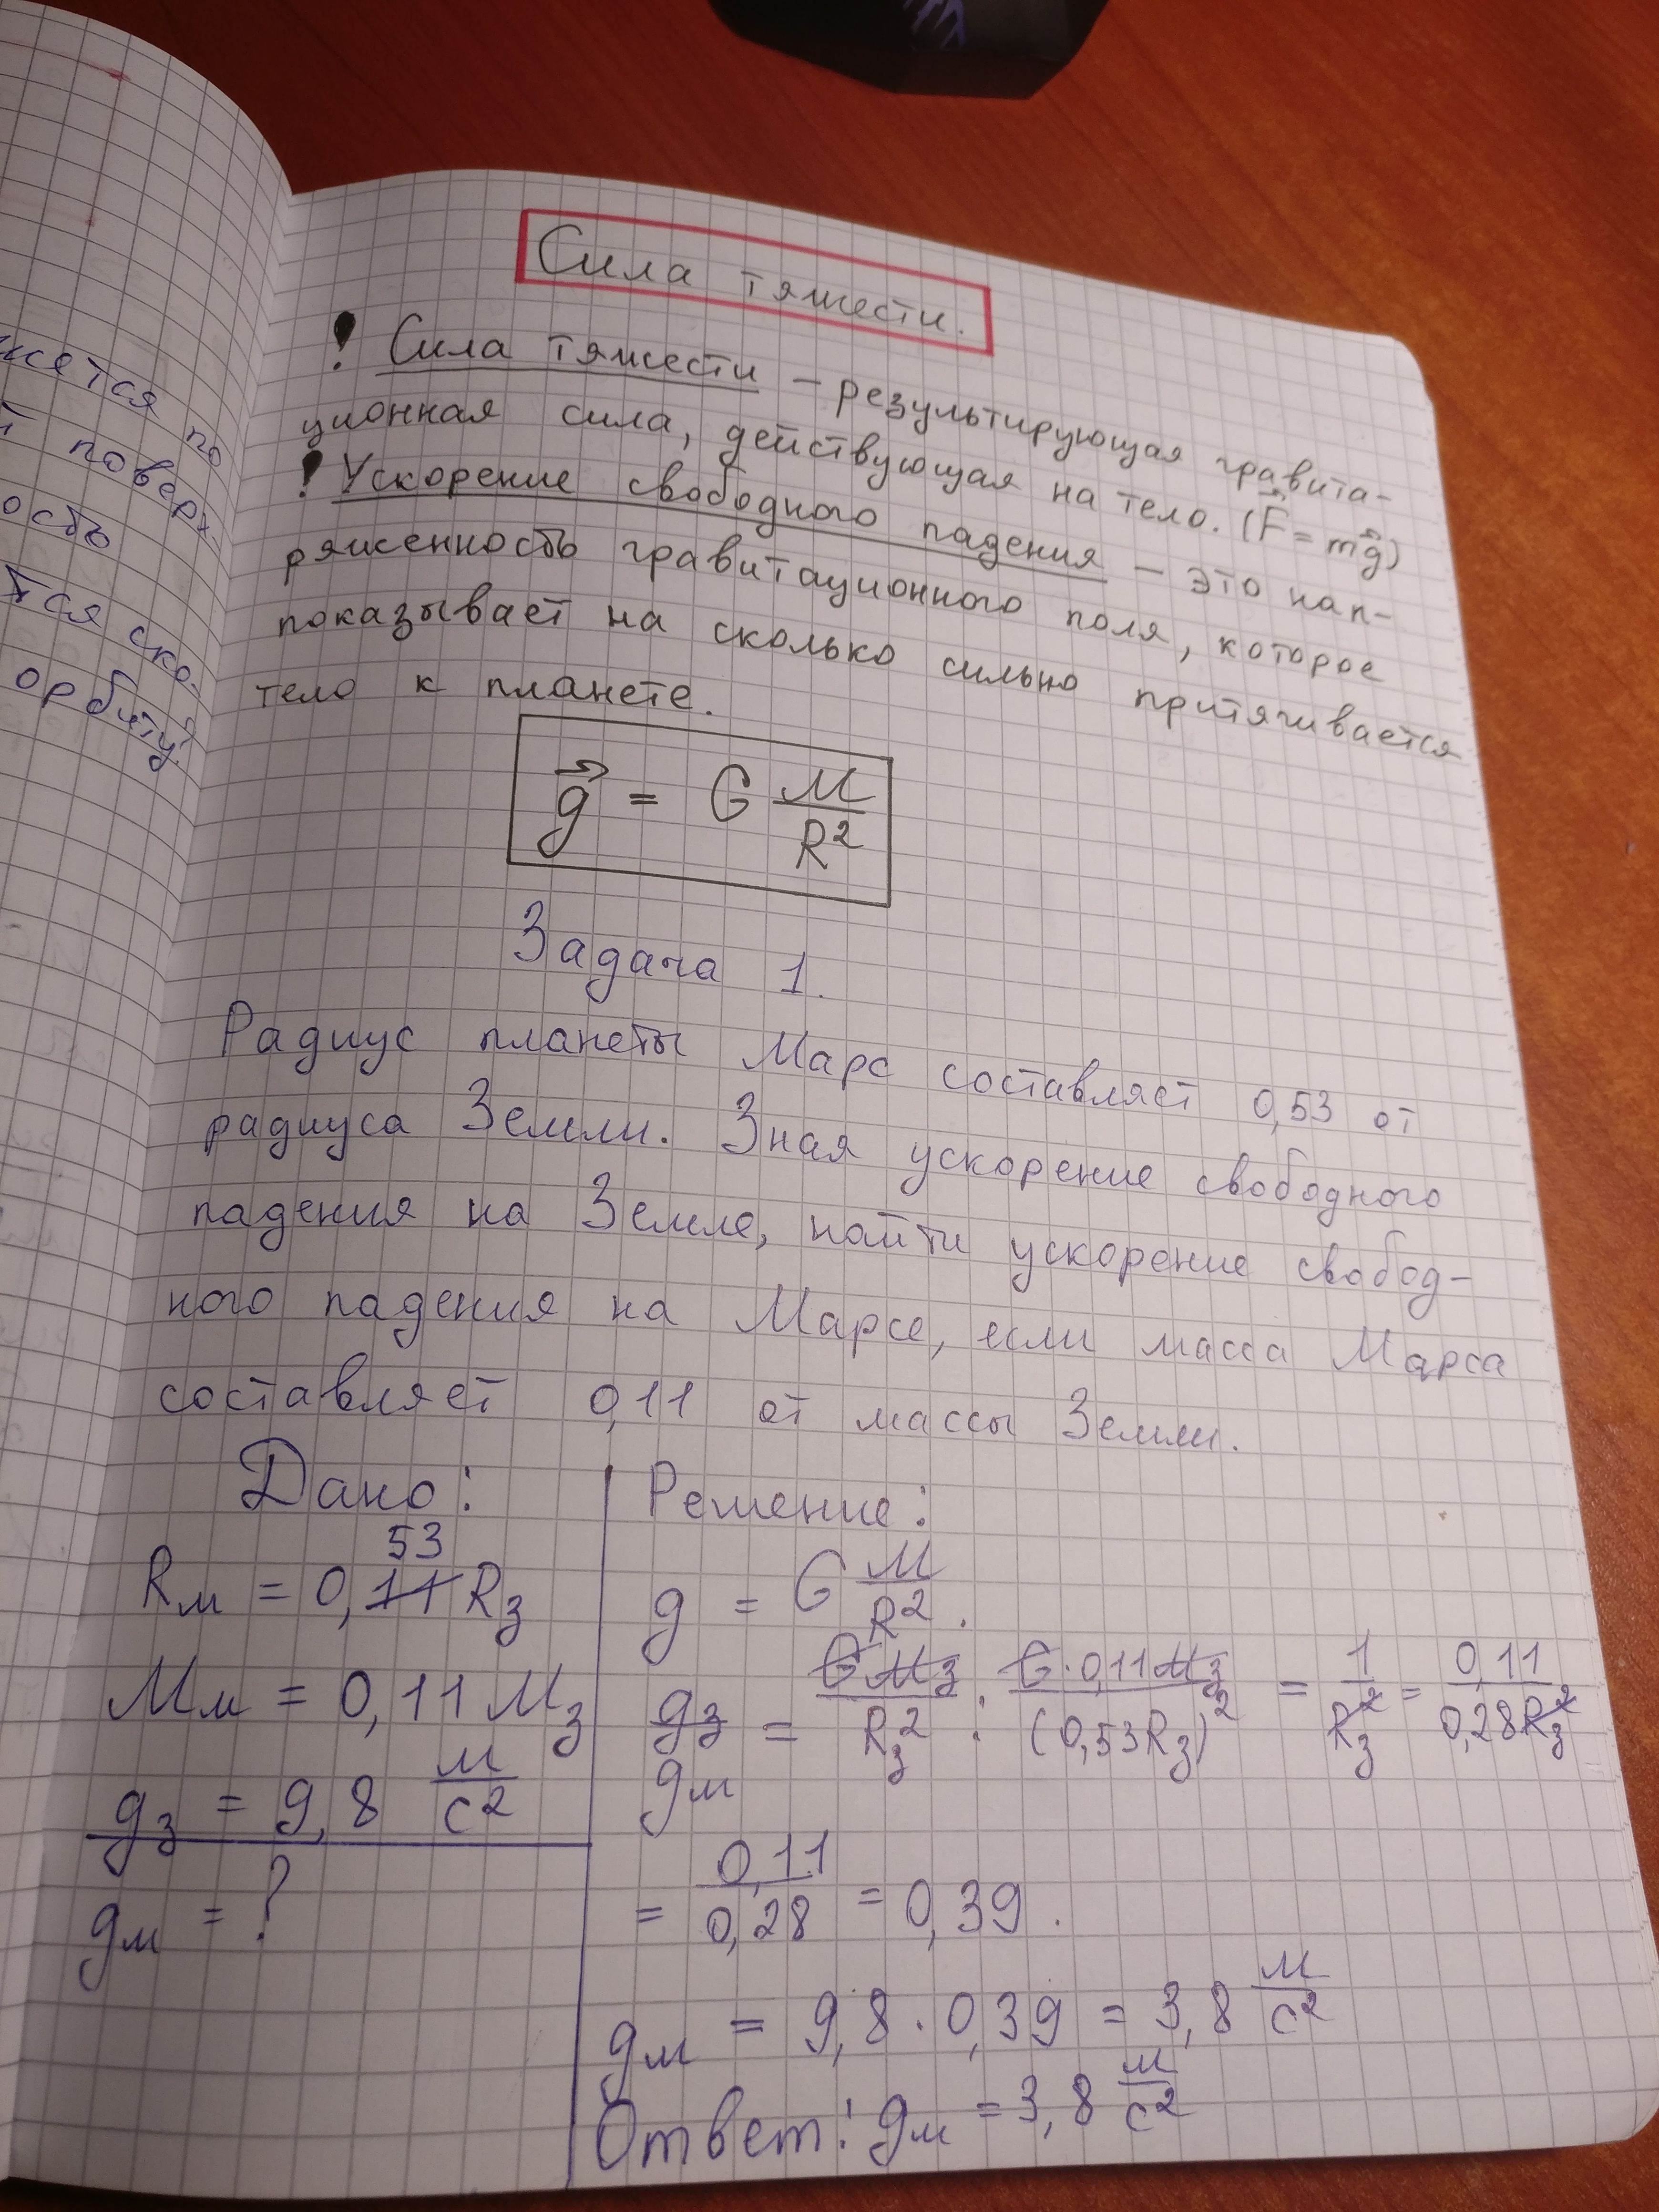 жется по
поверх-
ость
тся ско-
орбиту
Сила тяжести.
! Сила тяжести – результирующая гравита-
ционная сила, действующая на тело. (F⃗ = mg⃗)
! Ускорение свободного падения – это нап-
ряженность гравитационного поля, которое
показывает на сколько сильно притягивается
тело к планете.
g⃗ = G M/R²
Задача 1.
Радиус планеты Марс составляет 0,53 от
радиуса Земли. Зная ускорение свободного
падения на Земле, найти ускорение свобод-
ного падения на Марсе, если масса Марса
составляет 0,11 от массы Земли.
Дано:
53
Rм = 0,11 Rз
Mм = 0,11 Mз
gз = 9,8 м/с²
gм = ?
Решение:
g = G M/R².
gз/gм = GMз/Rз² : G·0,11Mз/(0,53Rз)² = 1/Rз² = 0,11/0,28Rз²
= 0,11/0,28 = 0,39.
gм = 9,8 · 0,39 = 3,8 м/с²
Ответ: gм = 3,8 м/с²